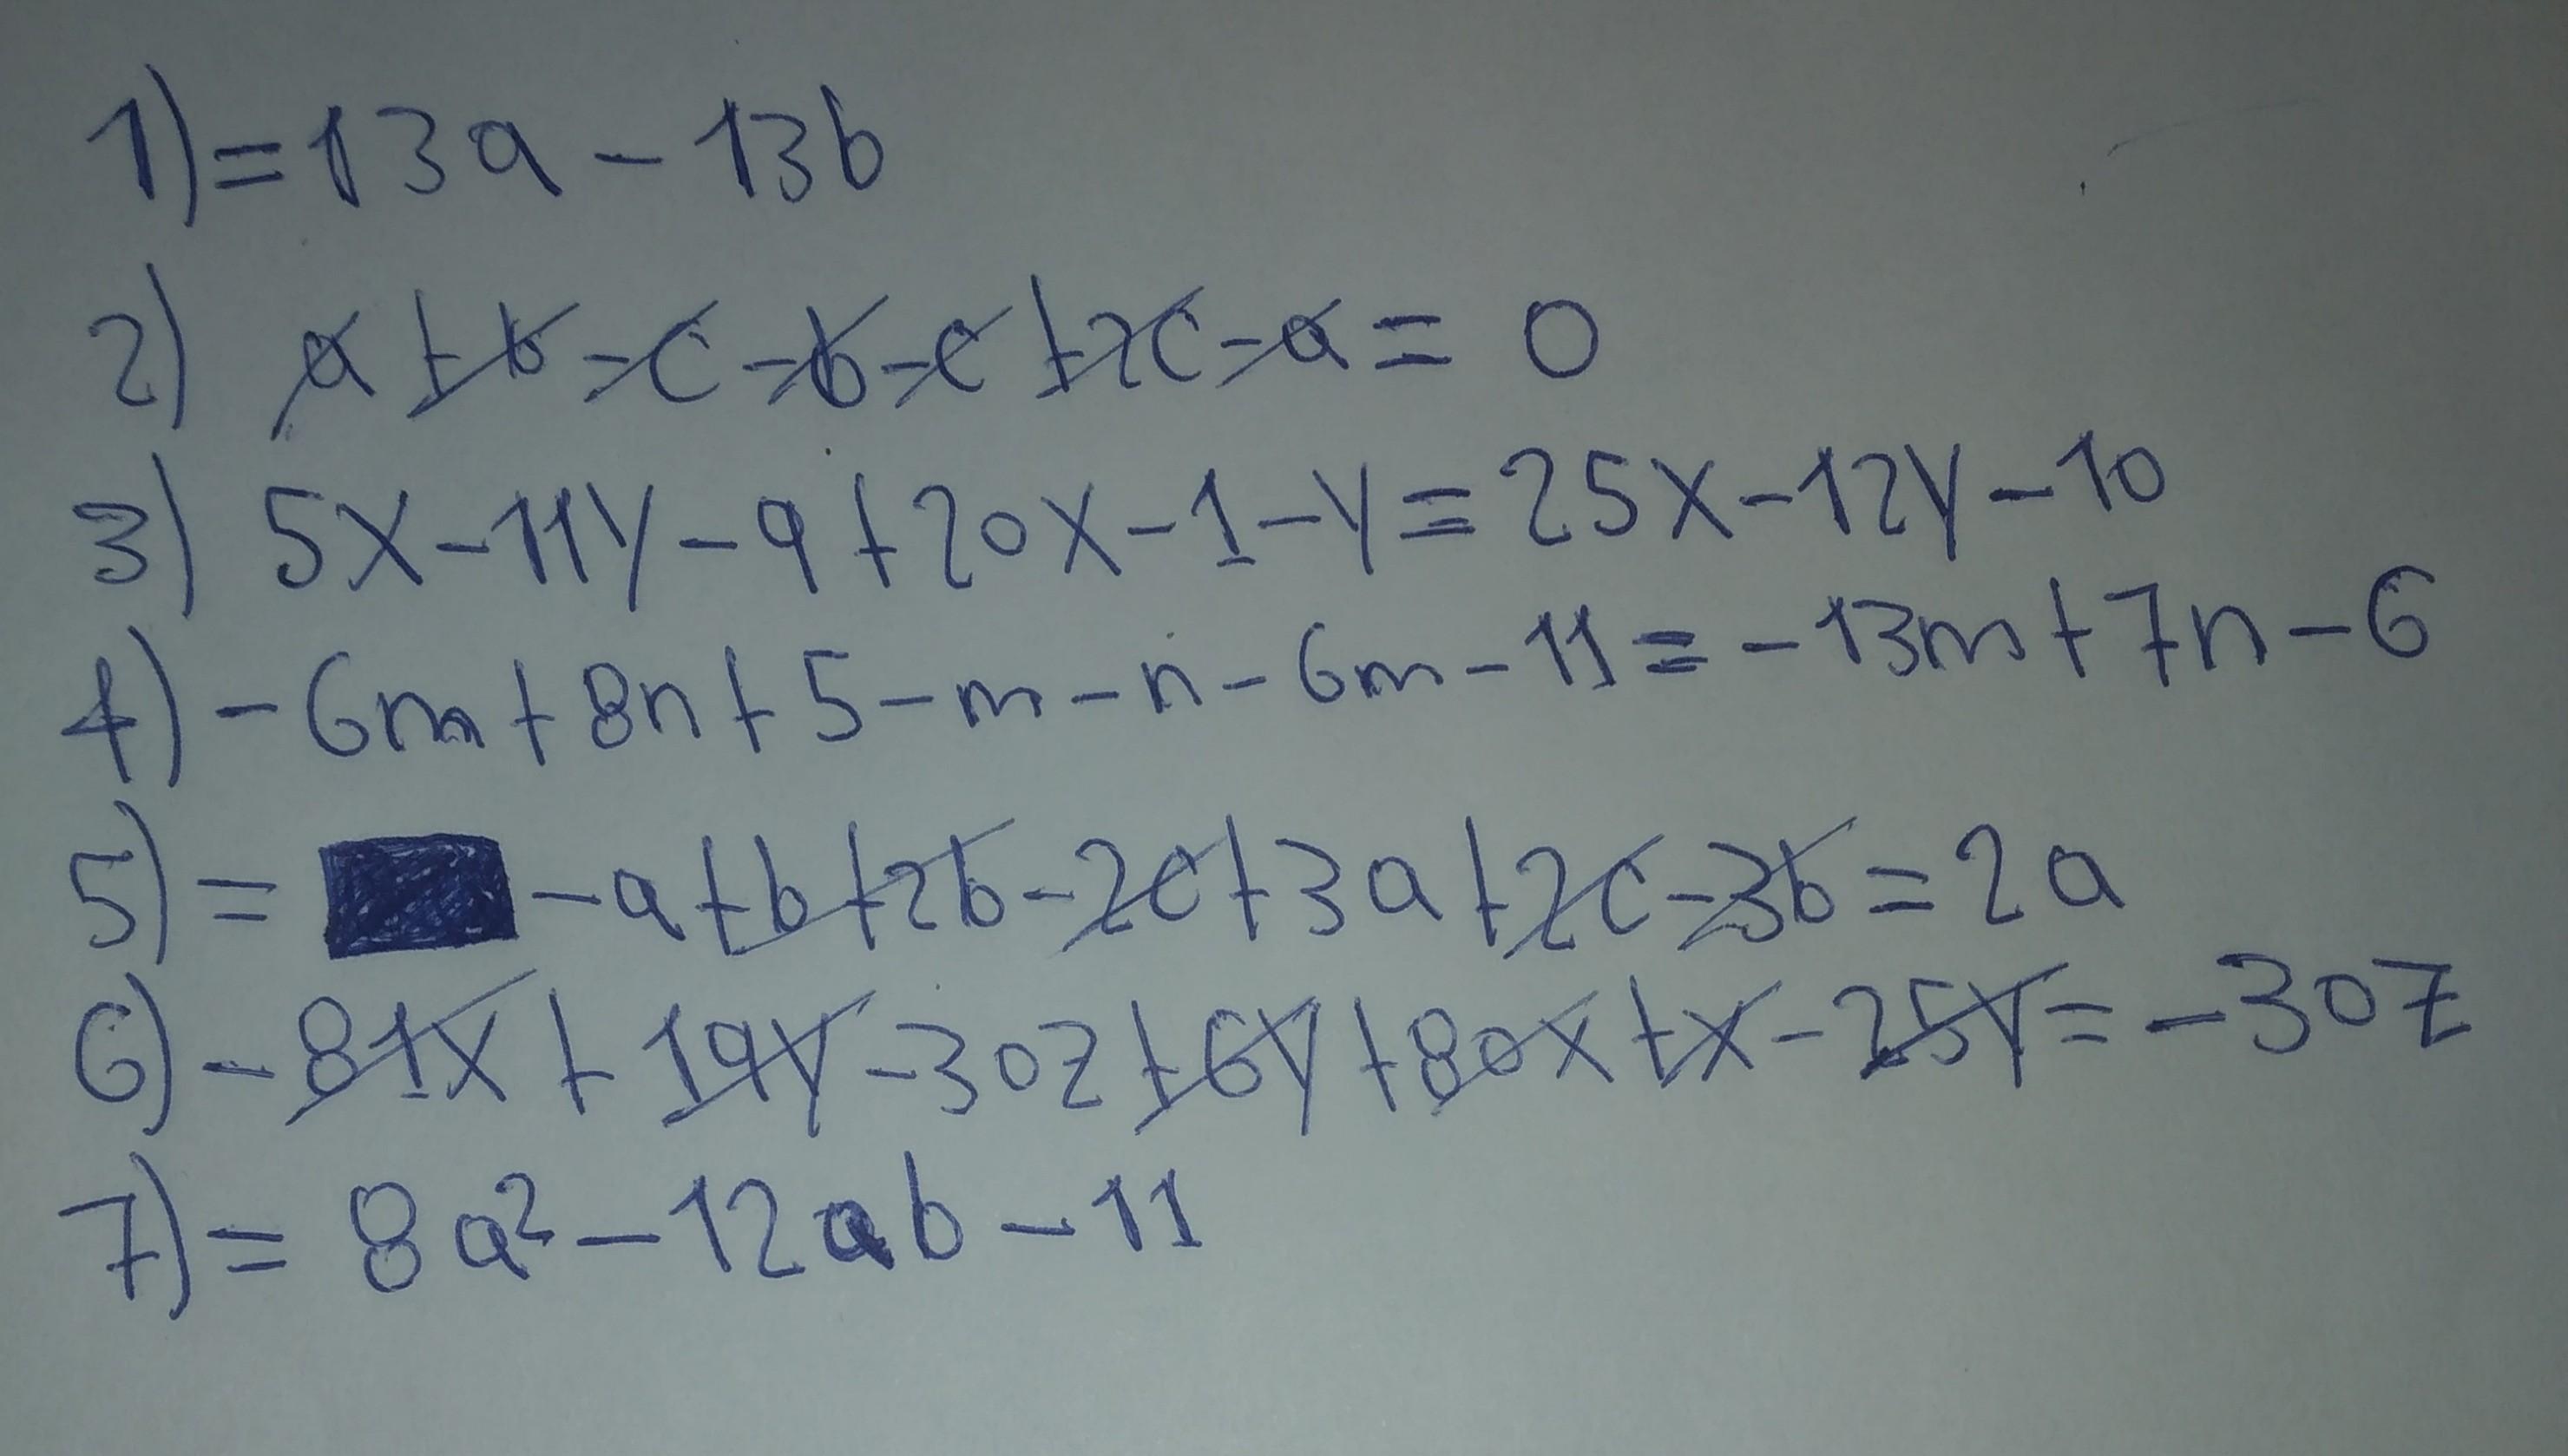 1) = 13a - 13b
2) a + b - c - b - c + 2c - a = 0
3) 5x - 11y - 9 + 20x - 1 - y = 25x - 12y - 10
4) - 6m + 8n + 5 - m - n - 6m - 11 = - 13m + 7n - 6
5) = - a + b + 2b - 2c + 3a + 2c - 3b = 2a
6) - 81x + 19y - 30z + 6y + 80x + x - 25y = - 30z
7) = 8a² - 12ab - 11